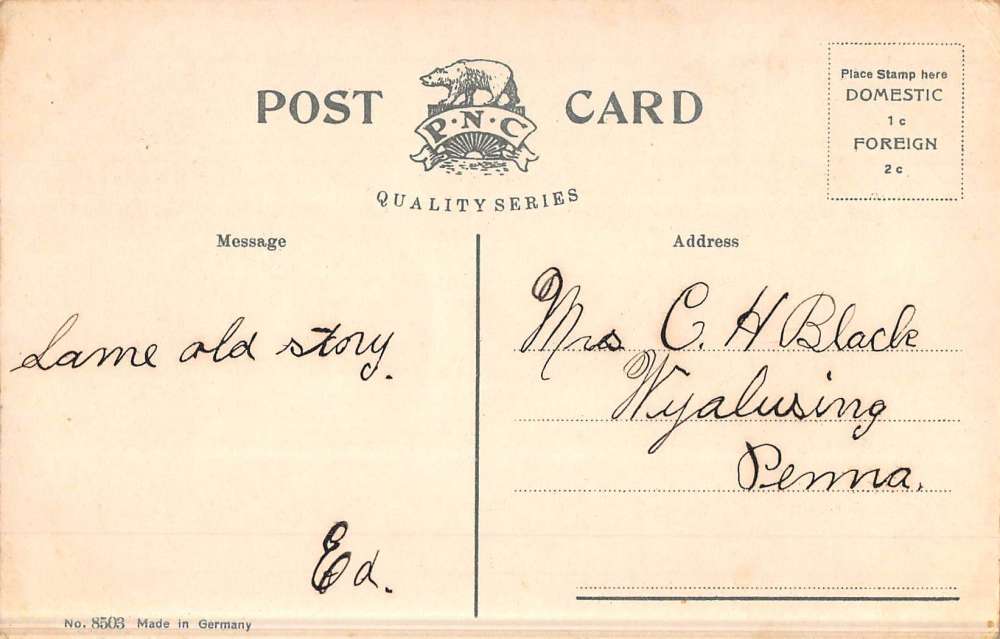 POST CARD
P·N·C
QUALITY SERIES
Place Stamp here
DOMESTIC
1c
FOREIGN
2c
Message
Address
Same old story.
Ed.
Mrs C. H Black
Wyalusing
Penna.
No. 8503 Made in Germany